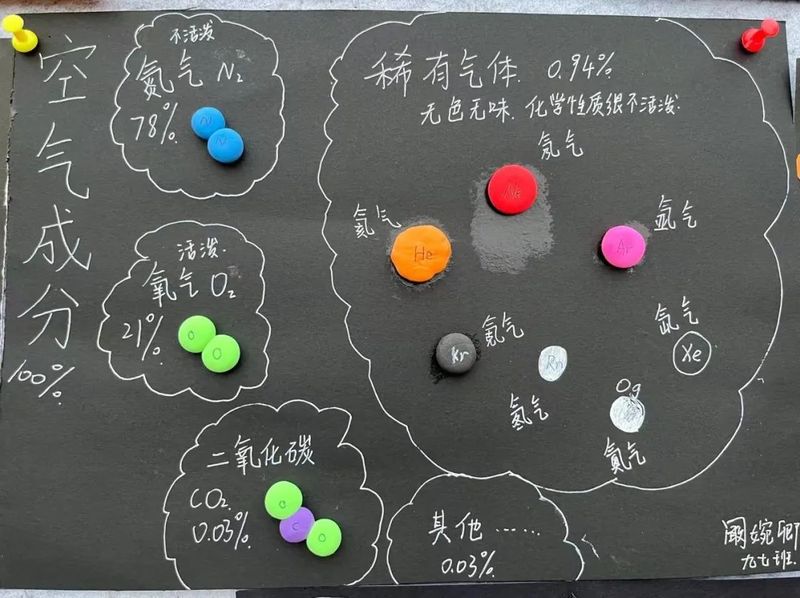 空气成分
100%
不活泼
氮气 N₂
78%
N
N
活泼.
氧气 O₂
21%
O
O
二氧化碳
CO₂
0.03%
O
C
O
稀有气体. 0.94%
无色无味. 化学性质很不活泼.
氖气
Ne
氦气
He
氩气
Ar
氪气
Kr
氙气
Xe
氡气
Rn
Og
其他……
0.03%
婉卿
九七班.